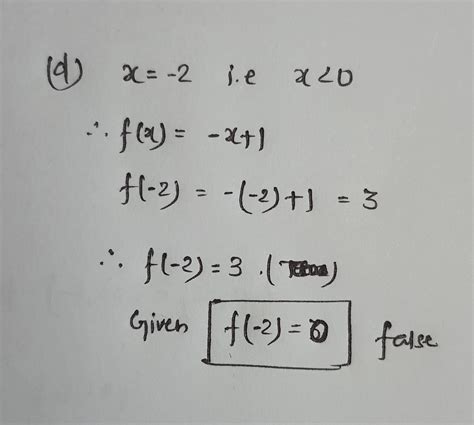 (d) x = -2 i.e x<0
∴ f(x) = -x+1
f(-2) = -(-2)+1 = 3
∴ f(-2) = 3 . ( )
Given f(-2) = 0 false